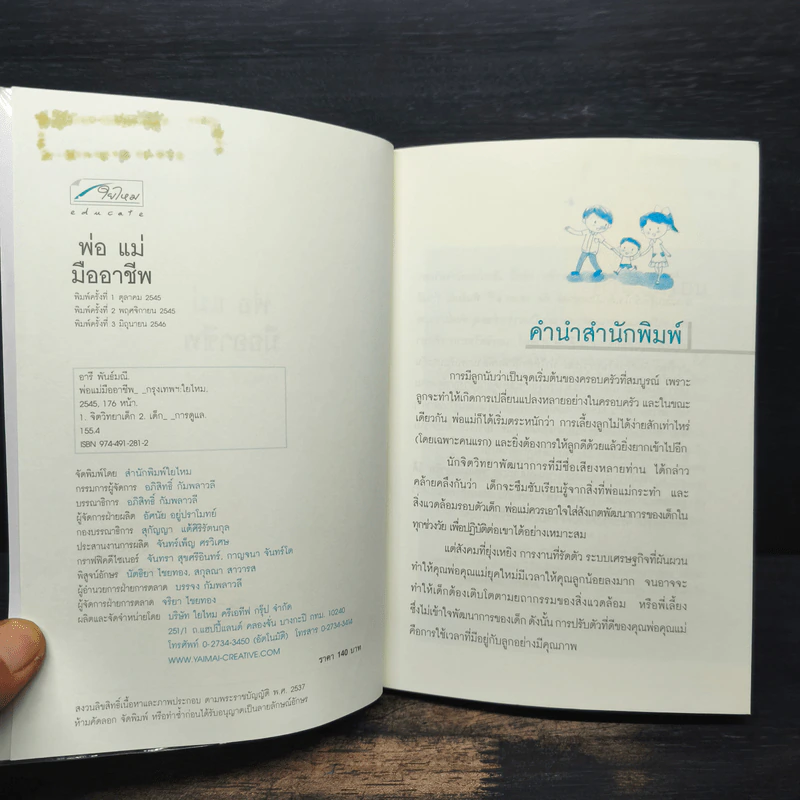 ใยไหม
educate
พ่อ แม่
มืออาชีพ
พิมพ์ครั้งที่ 1 ตุลาคม 2545
พิมพ์ครั้งที่ 2 พฤศจิกายน 2545
พิมพ์ครั้งที่ 3 มิถุนายน 2546
อารี พันธ์มณี.
พ่อแม่มืออาชีพ_ _กรุงเทพฯ:ใยไหม.
2545, 176 หน้า.
1. จิตวิทยาเด็ก 2. เด็ก_ _การดูแล.
155.4
ISBN 974-491-281-2
จัดพิมพ์โดย สำนักพิมพ์ใยไหม
กรรมการผู้จัดการ อภิสิทธิ์ กัมพลาวลี
บรรณาธิการ อภิสิทธิ์ กัมพลาวลี
ผู้จัดการฝ่ายผลิต อัศนัย อยู่ปราโมทย์
กองบรรณาธิการ สุกัญญา แต้ศิริรัตนกุล
ประสานงานการผลิต จันทร์เพ็ญ ศรวิเศษ
กราฟฟิคดีไซเนอร์ จันทรา สุขศรีอินทร์, กาญจนา จันทร์โต
พิสูจน์อักษร นัตธิยา ไชยทอง, สกุลณา สาวารส
ผู้อำนวยการฝ่ายการตลาด บรรจง กัมพลาวลี
ผู้จัดการฝ่ายการตลาด จริยา ไชยทอง
ผลิตและจัดจำหน่ายโดย บริษัท ใยไหม ครีเอทีฟ กรุ๊ป จำกัด
251/1 ถ.แฮปปี้แลนด์ คลองจั่น บางกะปิ กทม. 10240
โทรศัพท์ 0-2734-3450 (อัตโนมัติ) โทรสาร 0-2734-3454
WWW.YAIMAI-CREATIVE.COM
ราคา 140 บาท
สงวนลิขสิทธิ์เนื้อหาและภาพประกอบ ตามพระราชบัญญัติ พ.ศ. 2537
ห้ามคัดลอก จัดพิมพ์ หรือทำซ้ำก่อนได้รับอนุญาตเป็นลายลักษณ์อักษร
คำนำสำนักพิมพ์
การมีลูกนับว่าเป็นจุดเริ่มต้นของครอบครัวที่สมบูรณ์ เพราะ
ลูกจะทำให้เกิดการเปลี่ยนแปลงหลายอย่างในครอบครัว และในขณะ
เดียวกัน พ่อแม่ก็ได้เริ่มตระหนักว่า การเลี้ยงลูกไม่ได้ง่ายสักเท่าไหร่
(โดยเฉพาะคนแรก) และยิ่งต้องการให้ลูกดีด้วยแล้วยิ่งยากเข้าไปอีก
นักจิตวิทยาพัฒนาการที่มีชื่อเสียงหลายท่าน ได้กล่าว
คล้ายคลึงกันว่า เด็กจะซึมซับเรียนรู้จากสิ่งที่พ่อแม่กระทำ และ
สิ่งแวดล้อมรอบตัวเด็ก พ่อแม่ควรเอาใจใส่สังเกตพัฒนาการของเด็กใน
ทุกช่วงวัย เพื่อปฏิบัติต่อเขาได้อย่างเหมาะสม
แต่สังคมที่ยุ่งเหยิง การงานที่รัดตัว ระบบเศรษฐกิจที่ผันผวน
ทำให้คุณพ่อคุณแม่ยุคใหม่มีเวลาให้คุณลูกน้อยลงมาก จนอาจจะ
ทำให้เด็กต้องเติบโตตามยถากรรมของสิ่งแวดล้อม หรือพี่เลี้ยง
ซึ่งไม่เข้าใจพัฒนาการของเด็ก ดังนั้น การปรับตัวที่ดีของคุณพ่อคุณแม่
คือการใช้เวลาที่มีอยู่กับลูกอย่างมีคุณภาพ